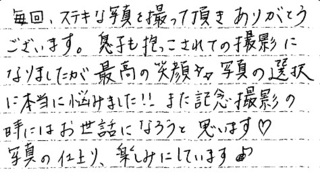 毎回、ステキな写真を撮って頂きありがとう
ございます。息子も抱っこされての撮影に
なりましたが最高の笑顔々々写真の選択
に本当に悩みました!! また記念撮影の
時にはお世話になろうと思います♡
写真の仕上り、楽しみにしています♪